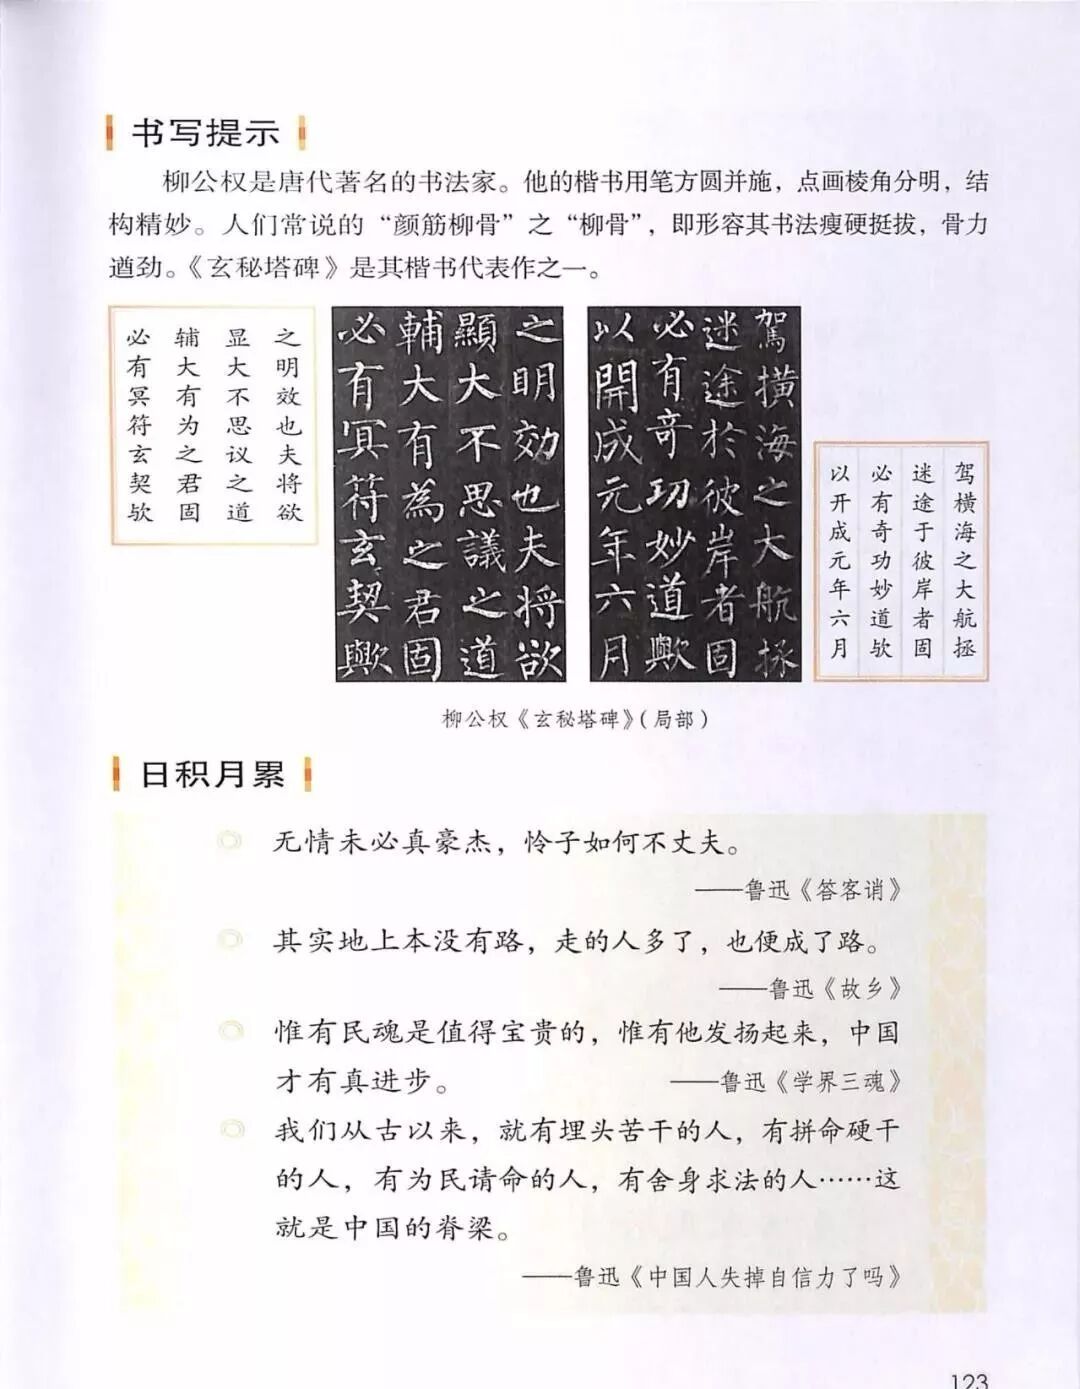 书写提示
柳公权是唐代著名的书法家。他的楷书用笔方圆并施，点画棱角分明，结
构精妙。人们常说的“颜筋柳骨”之“柳骨”，即形容其书法瘦硬挺拔，骨力
遒劲。《玄秘塔碑》是其楷书代表作之一。
之明效也夫将欲
显大不思议之道
辅大有为之君固
必有冥符玄契欤
之明効也夫将欲
顯大不思議之道
輔大有為之君固
必有冥符玄契歟
駕横海之大航拯
迷途於彼岸者固
必有奇功妙道歟
以開成元年六月
驾横海之大航拯
迷途于彼岸者固
必有奇功妙道欤
以开成元年六月
柳公权《玄秘塔碑》（局部）
日积月累
无情未必真豪杰，怜子如何不丈夫。
——鲁迅《答客诮》
其实地上本没有路，走的人多了，也便成了路。
——鲁迅《故乡》
惟有民魂是值得宝贵的，惟有他发扬起来，中国
才有真进步。 ——鲁迅《学界三魂》
我们从古以来，就有埋头苦干的人，有拼命硬干
的人，有为民请命的人，有舍身求法的人……这
就是中国的脊梁。
——鲁迅《中国人失掉自信力了吗》
123